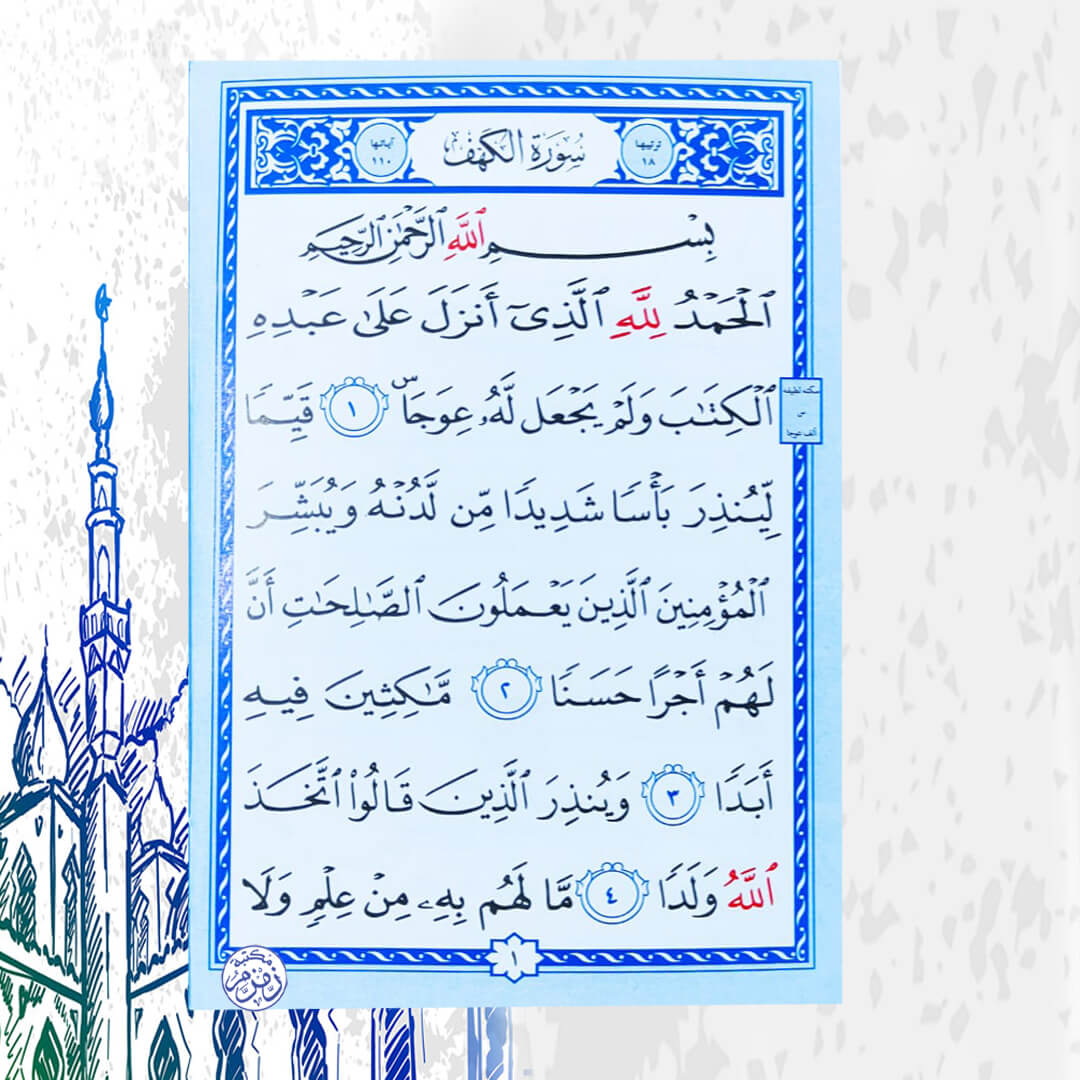 ترتيبها ١٨
سُورَةُ الكَهْفِ
آياتها ١١٠
بِسْمِ ٱللَّهِ ٱلرَّحْمَٰنِ ٱلرَّحِيمِ
ٱلْحَمْدُ لِلَّهِ ٱلَّذِىٓ أَنزَلَ عَلَىٰ عَبْدِهِ
ٱلْكِتَٰبَ وَلَمْ يَجْعَل لَّهُۥ عِوَجَاۜ ١ قَيِّمًا
سكته لطيفه
س
ألف عوجا
لِّيُنذِرَ بَأْسًا شَدِيدًا مِّن لَّدُنْهُ وَيُبَشِّرَ
ٱلْمُؤْمِنِينَ ٱلَّذِينَ يَعْمَلُونَ ٱلصَّٰلِحَٰتِ أَنَّ
لَهُمْ أَجْرًا حَسَنًا ٢ مَّٰكِثِينَ فِيهِ
أَبَدًا ٣ وَيُنذِرَ ٱلَّذِينَ قَالُوا۟ ٱتَّخَذَ
ٱللَّهُ وَلَدًا ٤ مَّا لَهُم بِهِۦ مِنْ عِلْمٍ وَلَا
١
مكتبة
زمزم